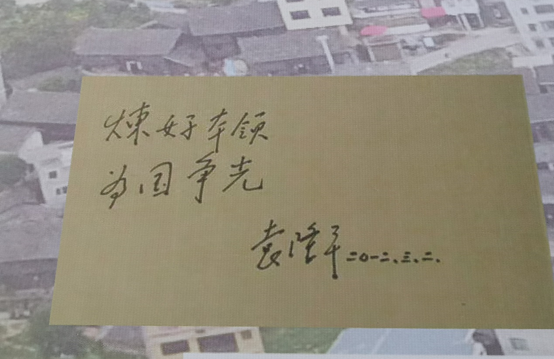 炼好本领
为国争光
袁隆平 二〇一二.三.二.